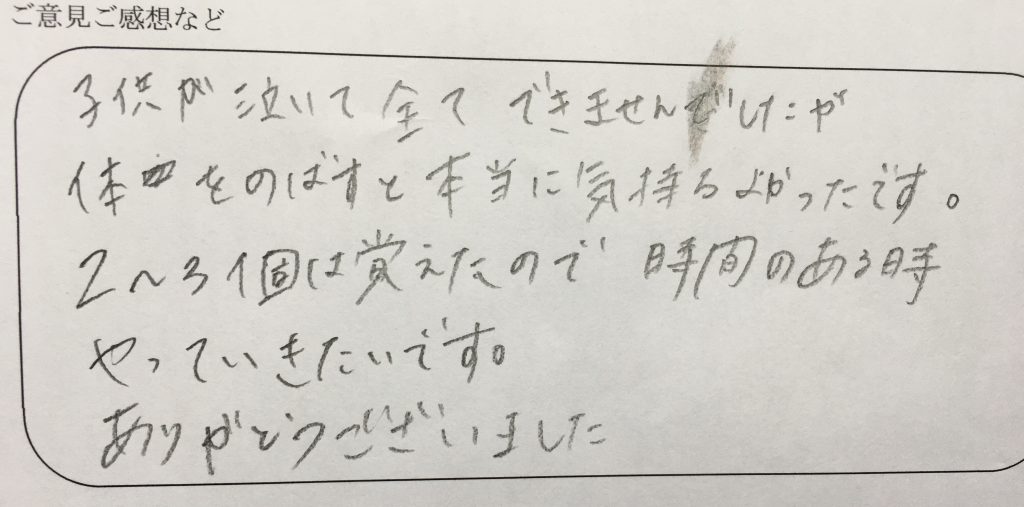 ご意見ご感想など
子供が泣いて全てできませんでしたが
体をのばすと本当に気持ちよかったです。
2〜3個は覚えたので時間のある時
やっていきたいです。
ありがとうございました